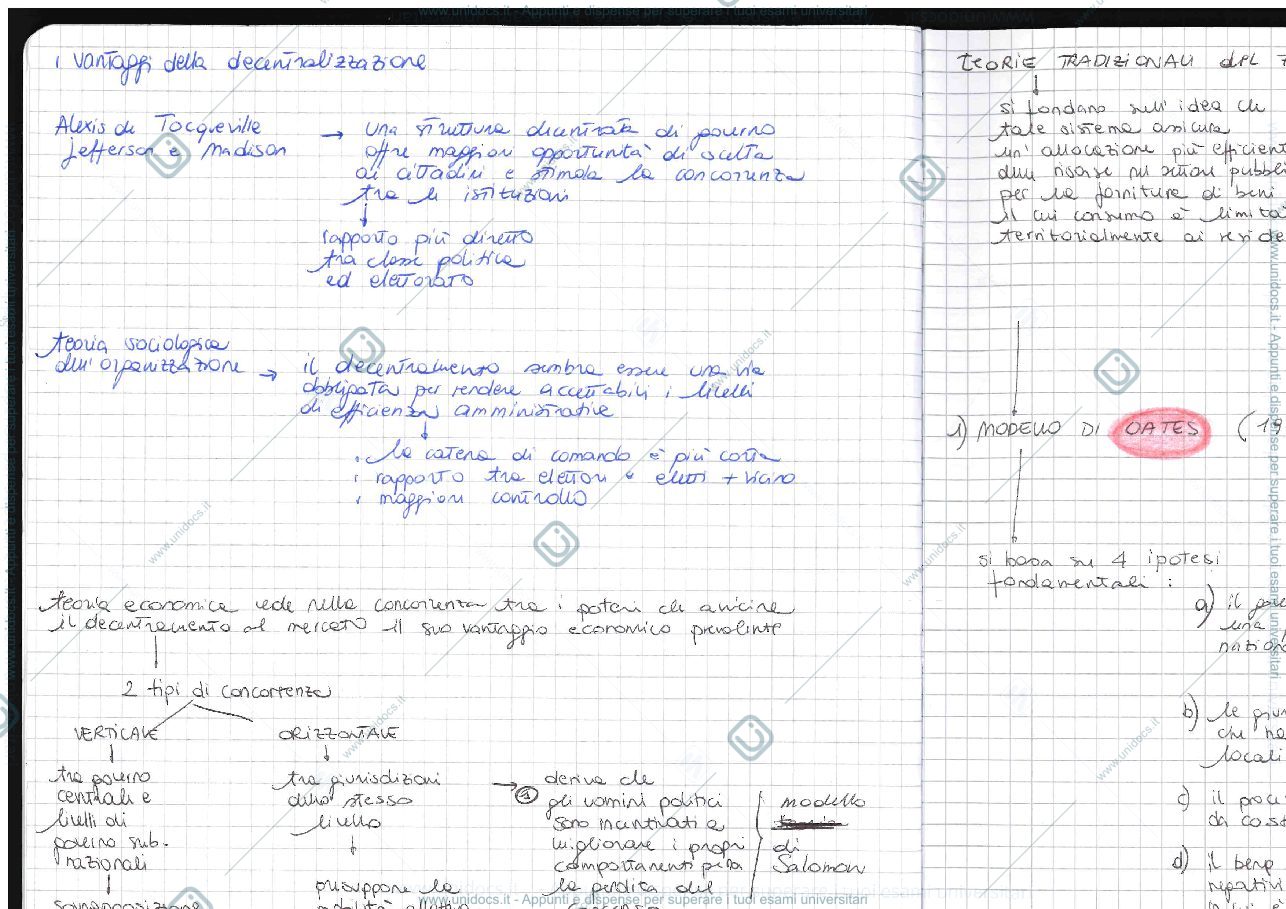 www.unidocs.it - Appunti e dispense per superare i tuoi esami universitari
i vantaggi della decentralizzazione
Alexis de Tocqueville
Jefferson e Madison
→ una struttura decentrata di governo
offre maggiori opportunità di scelta
ai cittadini e stimola la concorrenza
tra le istituzioni
rapporto più diretto
tra classe politica
ed elettorato
teoria sociologica
dell'organizzazione →
il decentramento sembra essere una via
obbligata per rendere accettabili i livelli
di efficienza amministrative
la catena di comando è più corta
rapporto tra elettori e eletti + vicino
maggiori controllo
teoria economica vede nella concorrenza tra i poteri che avvicina
il decentramento al mercato il suo vantaggio economico prevalente
2 tipi di concorrenza
VERTICALE
tra governo
centrali e
livelli di
governo sub-
nazionali
sovrapposizione
ORIZZONTALE
tra giurisdizioni
dello stesso
livello
presuppone la
→ 1 deriva che
gli uomini politici
sono incentivati a
migliorare i propri
comportamenti
la perdita del
modello
di
Salomon
TEORIE TRADIZIONALI DEL
si fondano sull'idea che
tale sistema assicura
un'allocazione più efficient
delle risorse nel settori pubbli
per la forniture di beni
il cui consumo è limita
territorialmente ai reside
1) MODELLO DI OATES (19
si basa su 4 ipotesi
fondamentali :
a) il
una
nazion
b) le giur
che ha
locali
c) il proc
da cost
d) il bene
negativi
www.unidocs.it - Appunti e dispense per superare i tuoi esami universitari